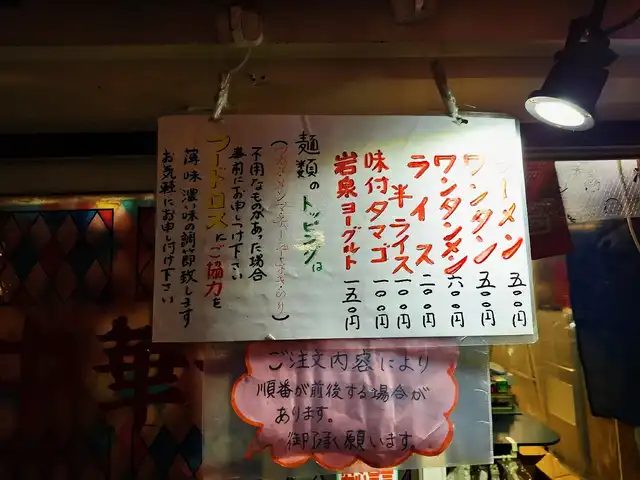 ラーメン 五〇〇円
ワンタン 五〇〇円
ワンタンメン 六〇〇円
ライス 二〇〇円
半ライス 一〇〇円
味付タマゴ 一〇〇円
岩泉ヨーグルト 一五〇円
麺類のトッピングは
不用なものがあった場合
事前にお申しつけ下さい
フードロスにご協力を
薄味濃い味の調節致します
お気軽にお申し付け下さい
ご注文内容により
順番が前後する場合が
あります。
御了承願います。
華